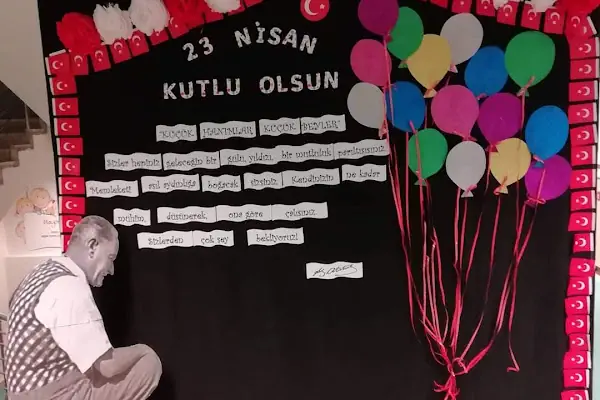 23 NİSAN
KUTLU OLSUN
"KÜÇÜK HANIMLAR KÜÇÜK BEYLER"
Sizler hepiniz geleceğin bir gülü, yıldızı, bir mutluluk parıltısısınız.
Memleketi asıl aydınlığa boğacak sizsiniz. Kendinizin ne kadar
mühim, düşünerek, ona göre çalışınız.
Sizlerden çok şey bekliyoruz!